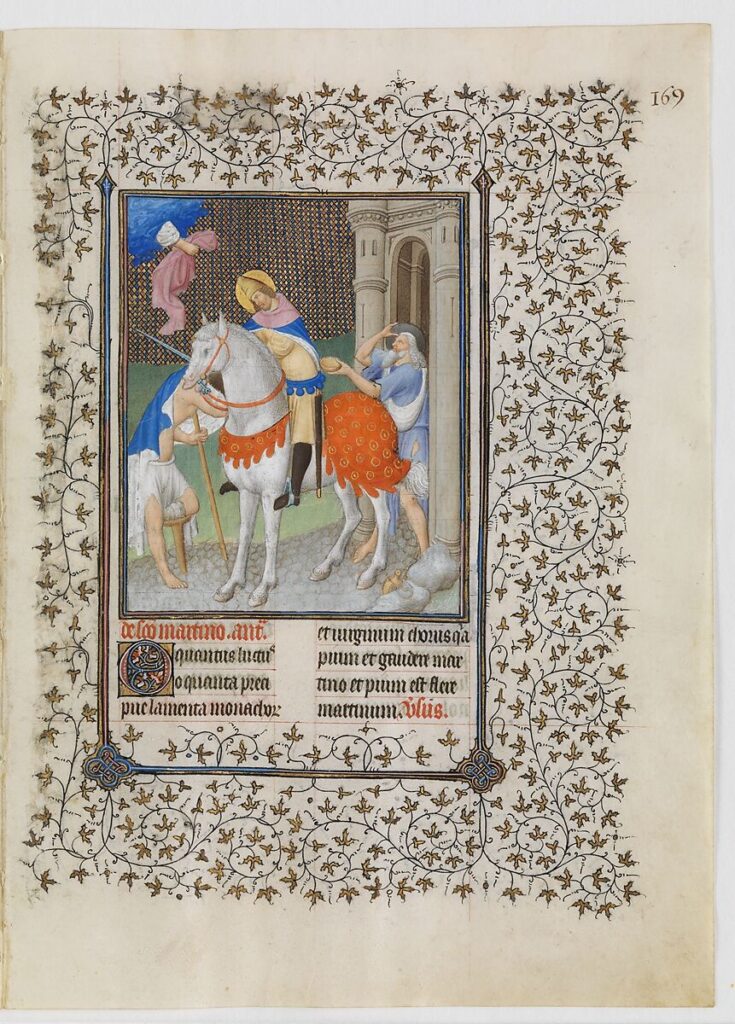 169
de sco martino. ant.
O quantus luctus
o quanta preci
pue lamenta monachor
et uirginum chorus qa
pium et gaudere mar
tino et pium est flere
martinum. Vsus.